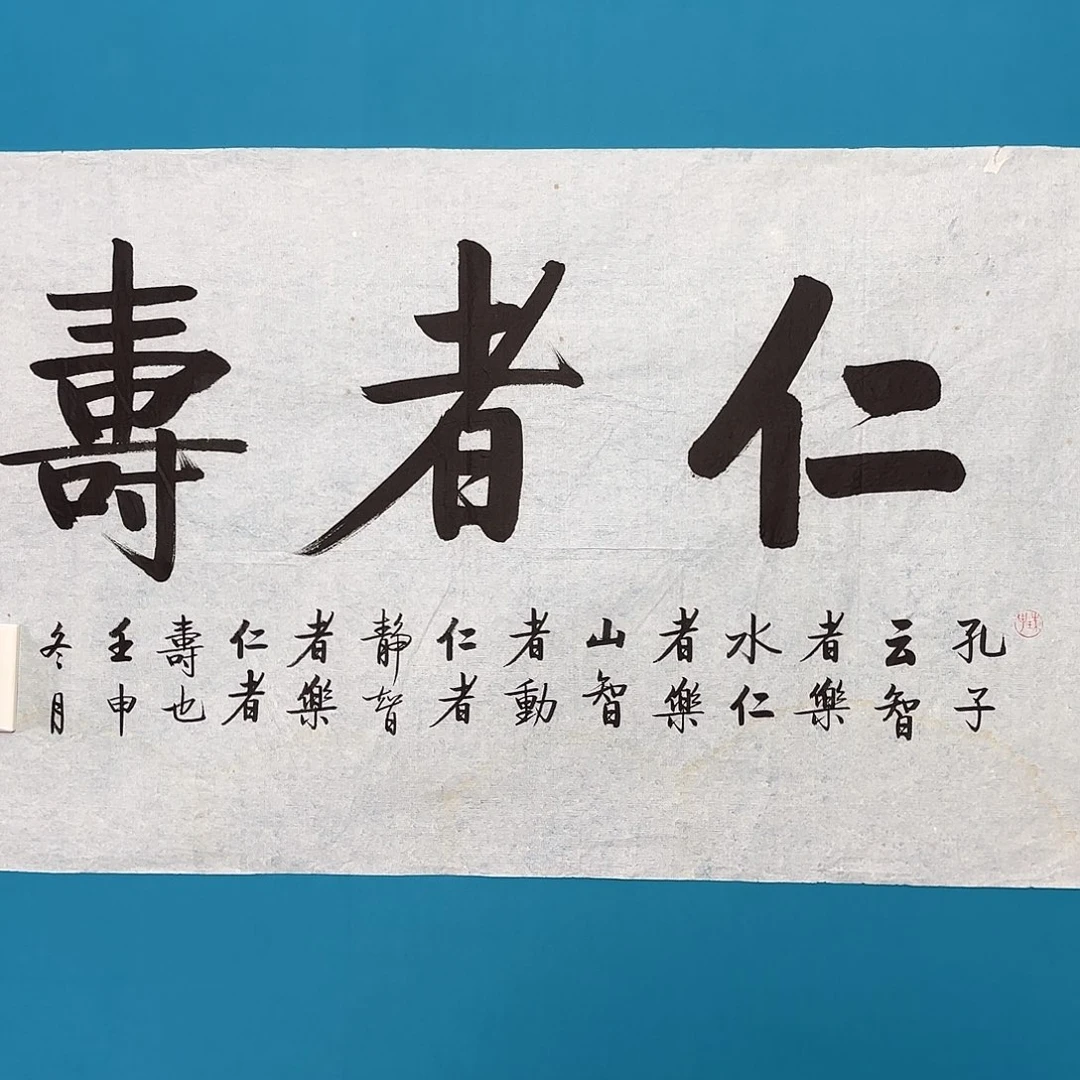 仁者壽
孔子
云智
者樂
水仁
者樂
山智
者動
仁者
静智
者樂
仁者
壽也
壬申
冬月